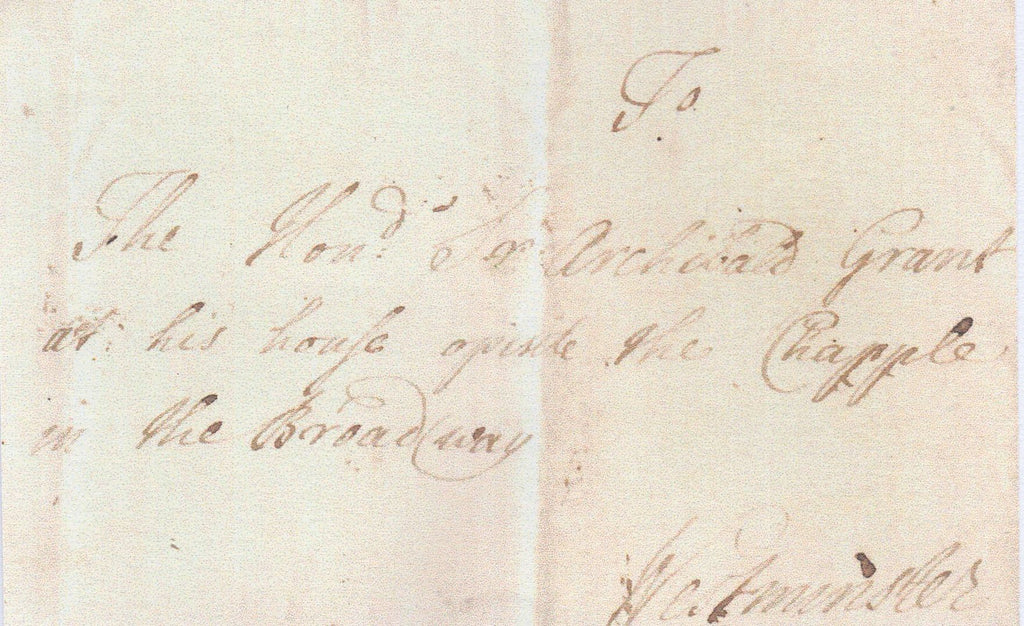 To
The Hond. Sr Archibald Grant
at his house opisite the Chapple
in the Broadway
Westminster